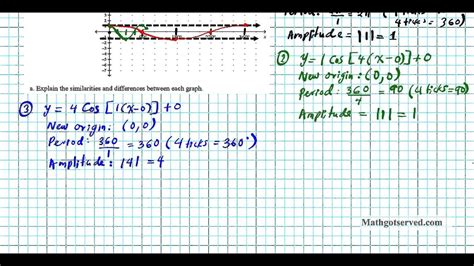 a. Explain the similarities and differences between each graph.
③ y = 4 Cos [1(x-0)] +0
New origin: (0,0)
Period: 360/1 = 360 (4 ticks = 360°)
Amplitude: |4| = 4
4 ticks = 360)
Amplitude = |1| = 1
② y = 1 Cos [4(x-0)] +0
New origin: (0,0)
Period: 360/4 = 90 (4 ticks=90)
Amplitude = |1| = 1
Mathgotserved.com